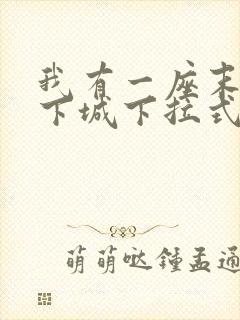 我有一座末
下城下拉式
萌萌哒鍾孟通